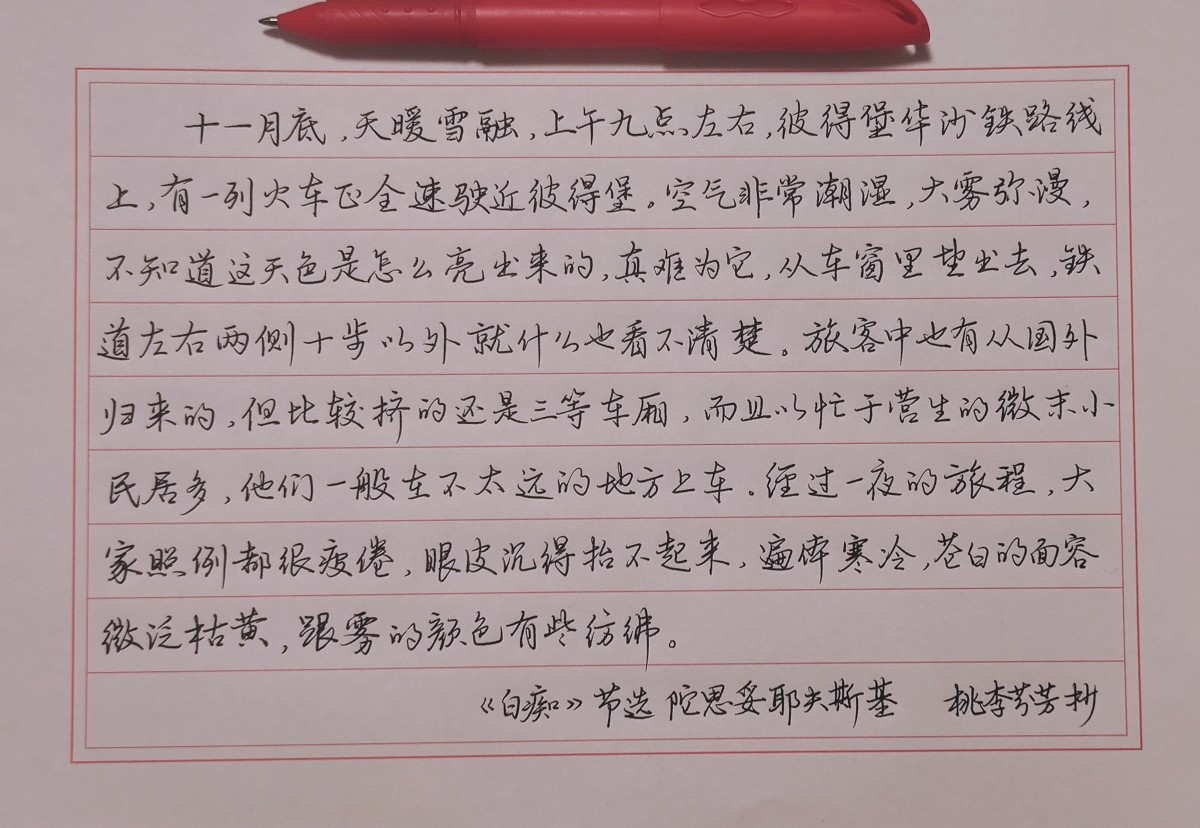 十一月底，天暖雪融，上午九点左右，彼得堡华沙铁路线
上，有一列火车正全速驶近彼得堡。空气非常潮湿，大雾弥漫，
不知道这天色是怎么亮出来的，真难为它，从车窗里望出去，铁
道左右两侧十步以外就什么也看不清楚。旅客中也有从国外
归来的，但比较挤的还是三等车厢，而且以忙于营生的微末小
民居多，他们一般在不太远的地方上车。经过一夜的旅程，大
家照例都很疲倦，眼皮沉得抬不起来，遍体寒冷，苍白的面容
微泛枯黄，跟雾的颜色有些仿佛。
《白痴》节选 陀思妥耶夫斯基 桃李芬芳抄